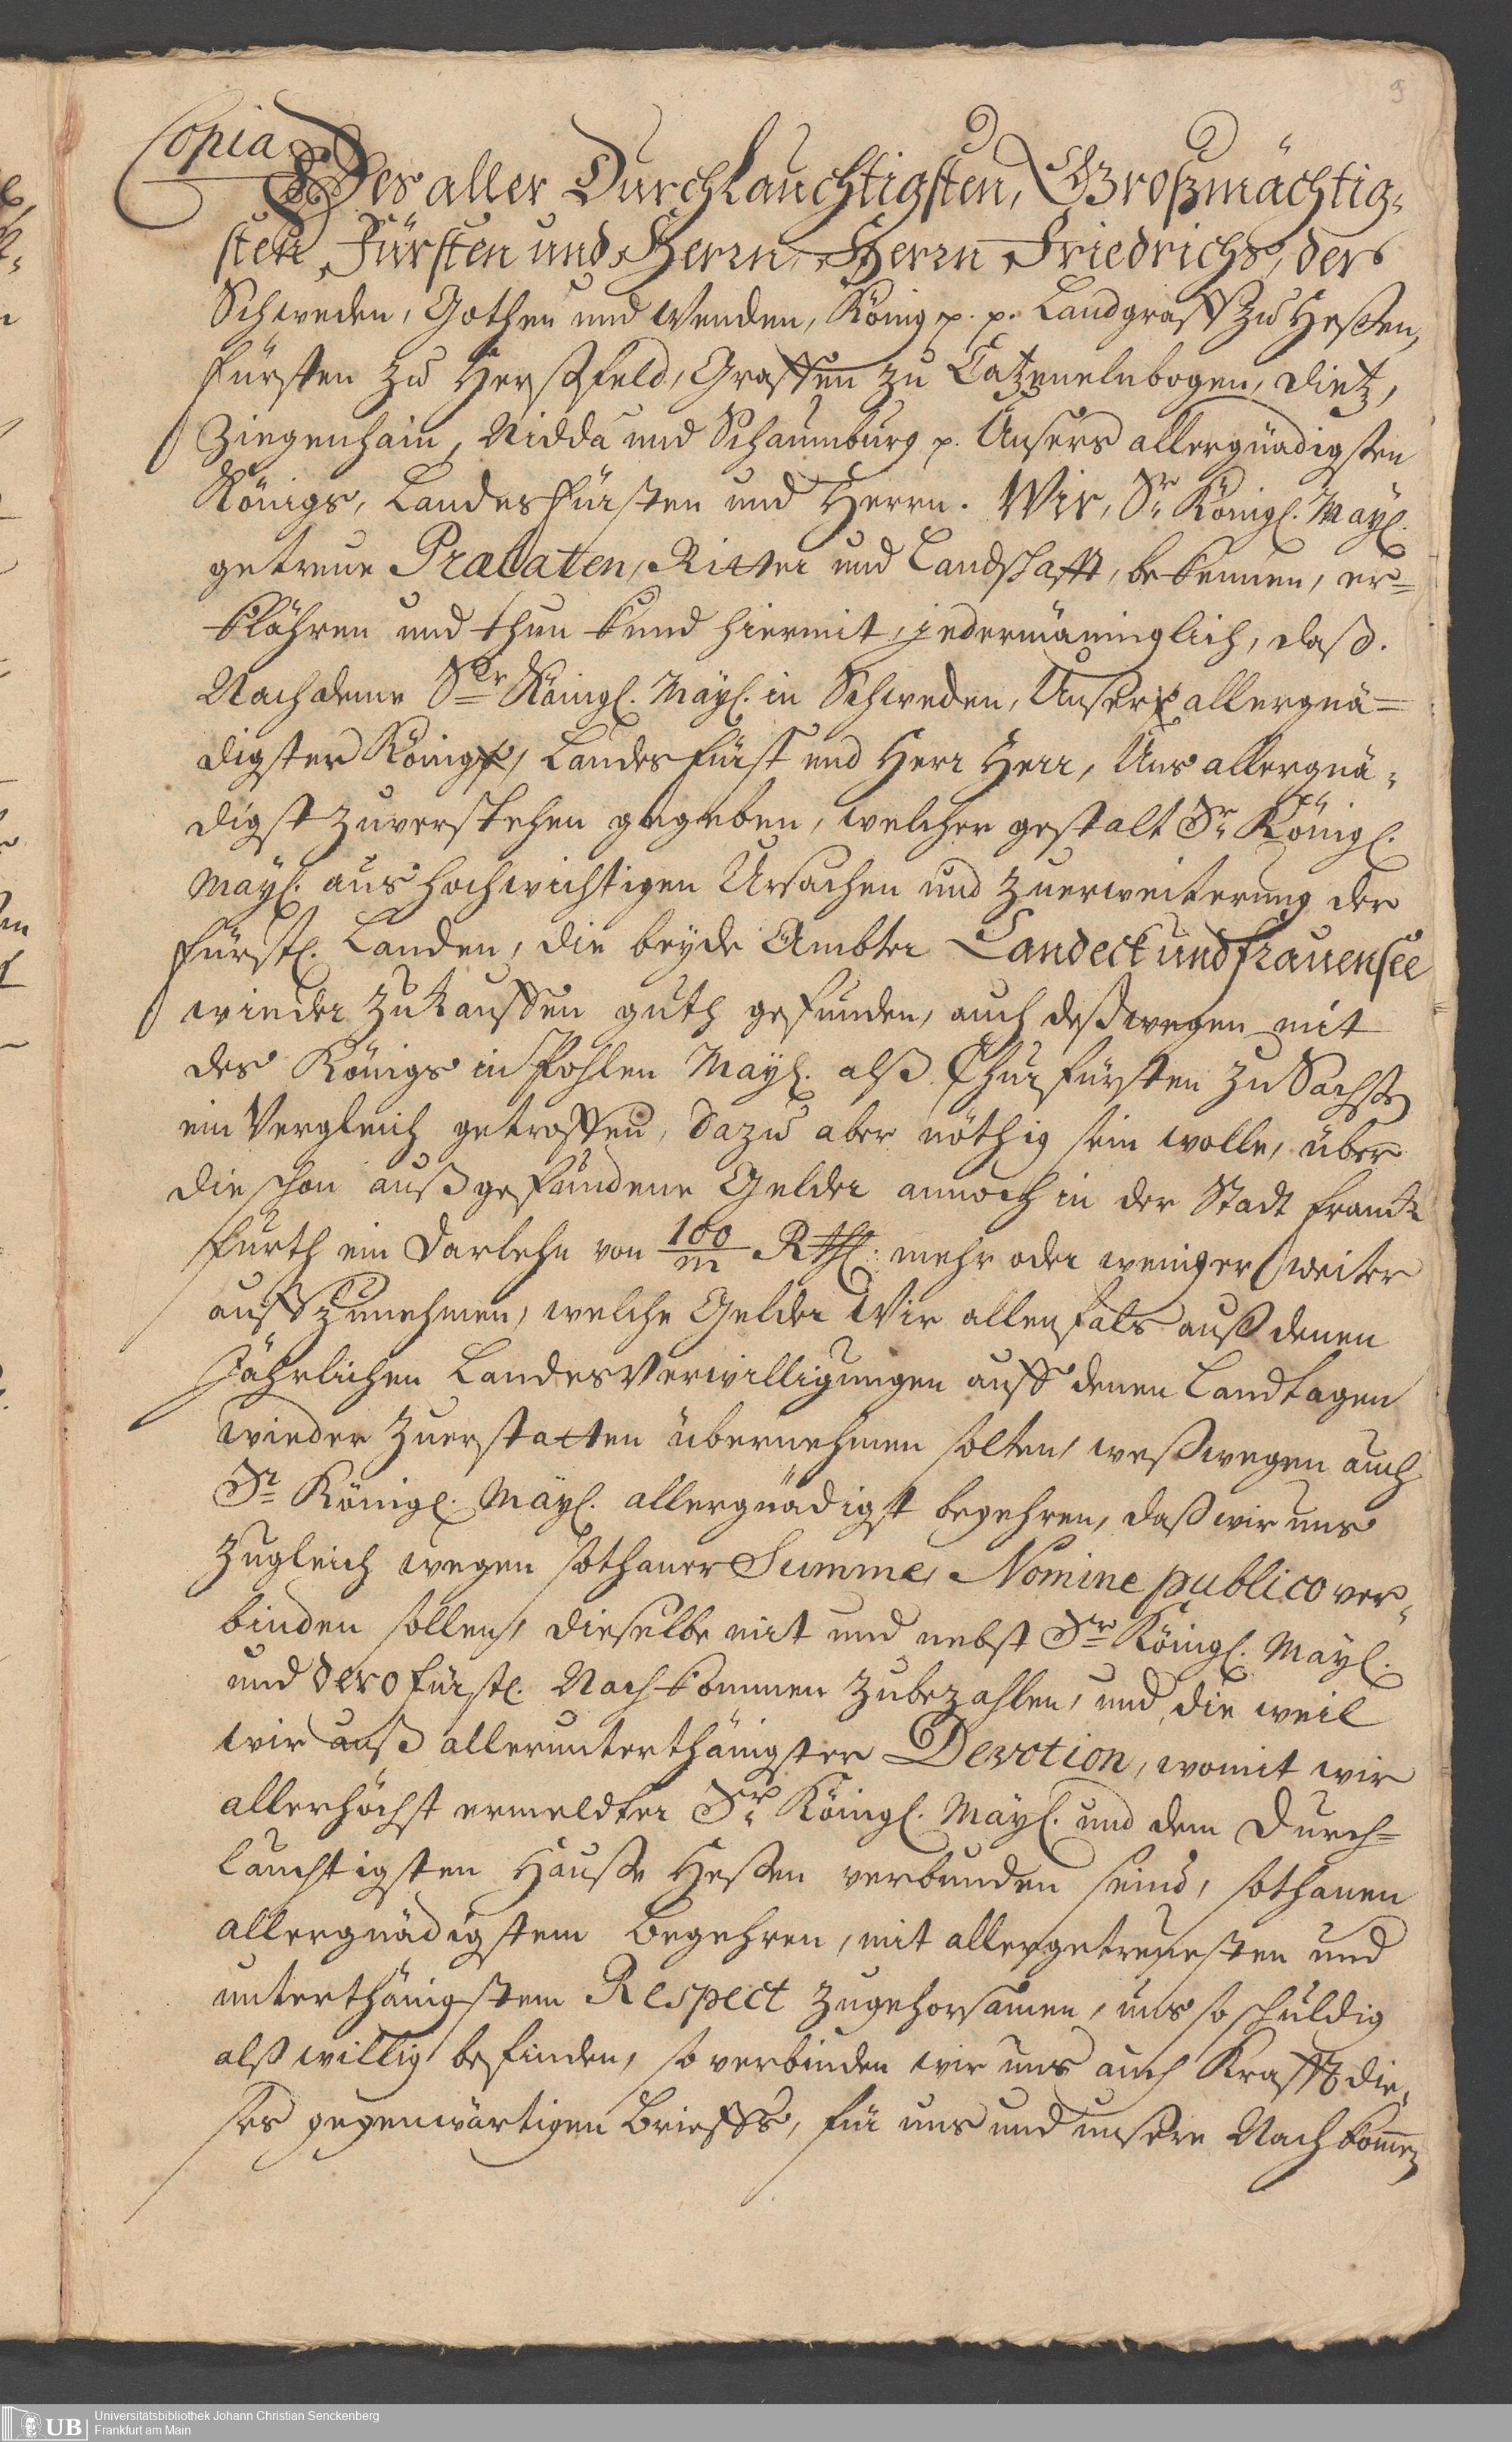 9
Copia
Des aller Durchlauchtigsten, Großmächtig,
sten Fürsten und Herrn, Herrn Friedrichs, der
Schweden, Gothen und Wenden, König p. p. Landgraff zu Heßen,
Fürsten zu Herßfeld, Graffen zu Catzenelnbogen, Dietz,
Ziegenhain, Nidda und Schaumburg p. Unsers allergnädigsten
Königs, Landesfürsten und Herrn. Wir, Sr. Königl. Mayl.
getreue Prælaten, Ritter und Landschafft, bekennen, er=
klähren und thun kund hiermit, jedermänniglich, daß.
Nachdeme Ser Königl. Mayl. in Schweden, Unser allergnä=
digster König, Landesfürst und Herr Herr, Uns allergnä,
digst zuverstehen gegeben, welcher gestalt Sr. Königl.
Mayl. aus hochwichtigen Ursachen und zuerweiterung der
Fürstl. Landen, die beyde Ämbter Landeck und frauensee
wieder zu kauffen guth gefunden, auch deßwegen mit
des Königs in Pohlen Mayl. alß Churfürsten zu Sachßen
ein Vergleich getroffen, dazu aber nöthig sein wolle, über
die schon außgefundene Gelder annoch in der Stadt Franck
furth ein Darlehn von 100/m Rthl. mehr oder weniger weiter
auffzunehmen, welche Gelder Wir allenfals auß denen
Jährlichen Landes Verwilligungen auff denen Landtagen
wieder zuerstatten übernehmen solten, weßwegen auch
Sr Königl. Mayl. allergnädigst begehren, daß wir uns
zugleich wegen sothaner Summe, Nomine publico ver,
binden sollen, dieselbe mit und nebst Sr Königl. Mayl.
und dero fürstl. Nachkommen zubezahlen, und, die weil
wir auß allerunterthänigster Devotion, womit wir
allerhöchst ermeldter Sr. Königl. Mayl. und dem Durch=
lauchtigsten Hauße Heßen verbunden seind, sothanen
allergnädigstem Begehren, mit allergetreuesten und
unterthänigstem Respect zugehorsamen, uns so schuldig
alß willig befinden, so verbinden wir uns auch Krafft die,
ses gegenwärtigen Brieffs, für uns und unsere Nachkommen
UB
Universitätsbibliothek Johann Christian Senckenberg
Frankfurt am Main